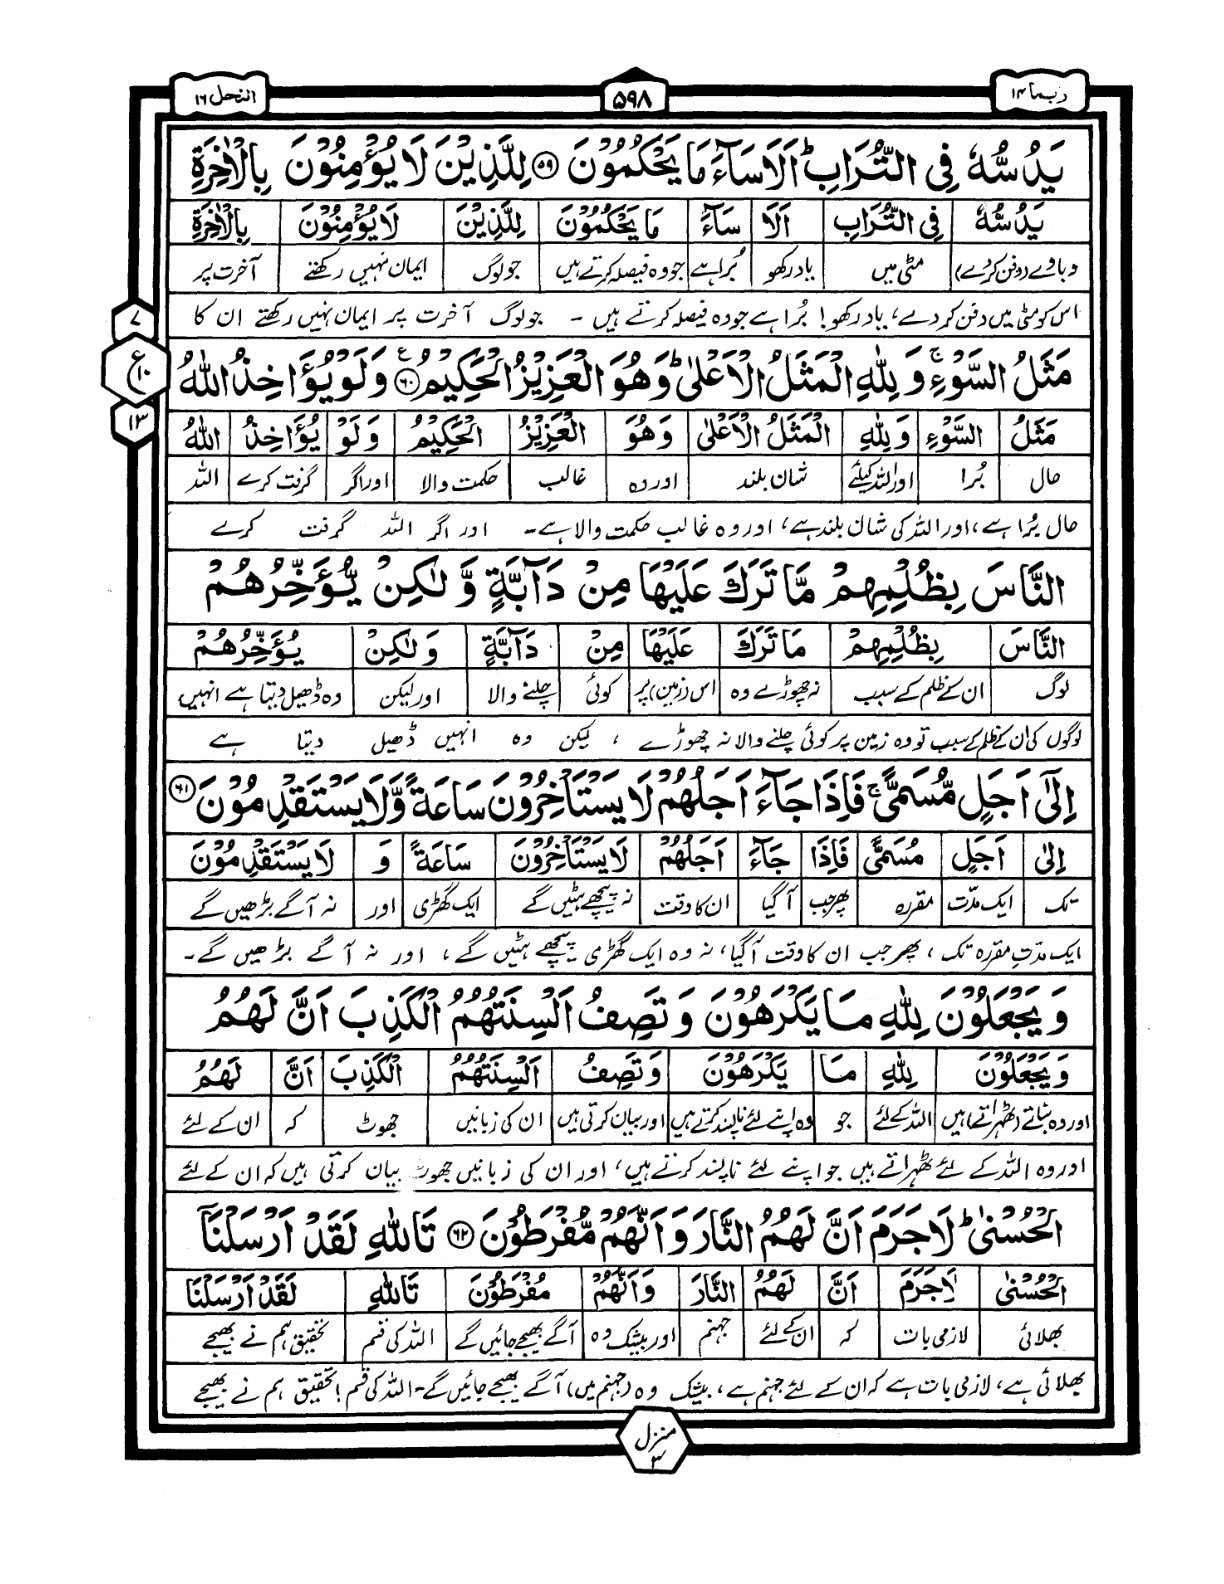 ربما ۱۴
۵۹۸
النحل ۱۶
يَدُسُّهٗ فِی التُّرَابِ ؕ اَلَا سَآءَ مَا يَحْكُمُوْنَ ۵۹ لِلَّذِيْنَ لَا يُؤْمِنُوْنَ بِالْاٰخِرَةِ
يَدُسُّهٗ فِی التُّرَابِ اَلَا سَآءَ مَا يَحْكُمُوْنَ لِلَّذِيْنَ لَا يُؤْمِنُوْنَ بِالْاٰخِرَةِ
دباوے (دفن کردے) مٹی میں یاد رکھو بُرا ہے جو وہ فیصلہ کرتے ہیں جو لوگ ایمان نہیں رکھتے آخرت پر
اس کو مٹی میں دفن کردے، یاد رکھو! بُرا ہے جو وہ فیصلہ کرتے ہیں ۔ جو لوگ آخرت پر ایمان نہیں رکھتے ان کا
۷
ع ۱۰
۱۳
مَثَلُ السَّوْءِ ۚ وَ لِلّٰهِ الْمَثَلُ الْاَعْلٰی ؕ وَهُوَ الْعَزِيْزُ الْحَكِيْمُ ۶۰ ع وَلَوْ يُؤَاخِذُ اللّٰهُ
مَثَلُ السَّوْءِ وَلِلّٰهِ الْمَثَلُ الْاَعْلٰی وَهُوَ الْعَزِيْزُ الْحَكِيْمُ وَلَوْ يُؤَاخِذُ اللّٰهُ
حال بُرا اور اللہ کیلئے شان بلند اور وہ غالب حکمت والا اور اگر گرفت کرے اللہ
حال بُرا ہے، اور اللہ کی شان بلند ہے، اور وہ غالب حکمت والا ہے۔ اور اگر اللہ گرفت کرے
النَّاسَ بِظُلْمِهِمْ مَّا تَرَكَ عَلَيْهَا مِنْ دَآبَّةٍ وَّ لٰكِنْ يُّؤَخِّرُهُمْ
النَّاسَ بِظُلْمِهِمْ مَا تَرَكَ عَلَيْهَا مِنْ دَآبَّةٍ وَلٰكِنْ يُؤَخِّرُهُمْ
لوگ ان کے ظلم کے سبب نہ چھوڑے وہ اس (زمین) پر کوئی چلنے والا اور لیکن وہ ڈھیل دیتا ہے انہیں
لوگوں کی ان کے ظلم کے سبب تو وہ زمین پر کوئی چلنے والا نہ چھوڑے ، لیکن وہ انہیں ڈھیل دیتا ہے
اِلٰۤی اَجَلٍ مُّسَمًّی ۚ فَاِذَا جَآءَ اَجَلُهُمْ لَا يَسْتَاْخِرُوْنَ سَاعَةً وَّلَا يَسْتَقْدِمُوْنَ ۶۱
اِلٰی اَجَلٍ مُسَمًّی فَاِذَا جَآءَ اَجَلُهُمْ لَا يَسْتَاْخِرُوْنَ سَاعَةً وَ لَا يَسْتَقْدِمُوْنَ
تک ایک مدّت مقررہ پھر جب آگیا ان کا وقت نہ پیچھے ہٹیں گے ایک گھڑی اور نہ آگے بڑھیں گے
ایک مدّتِ مقررہ تک ، پھر جب ان کا وقت آگیا، نہ وہ ایک گھڑی پیچھے ہٹیں گے، اور نہ آگے بڑھیں گے۔
وَ يَجْعَلُوْنَ لِلّٰهِ مَا يَكْرَهُوْنَ وَ تَصِفُ اَلْسِنَتُهُمُ الْكَذِبَ اَنَّ لَهُمُ
وَيَجْعَلُوْنَ لِلّٰهِ مَا يَكْرَهُوْنَ وَتَصِفُ اَلْسِنَتُهُمُ الْكَذِبَ اَنَّ لَهُمُ
اور وہ بناتے (ٹھہراتے) ہیں اللہ کے لئے جو وہ اپنے لئے ناپسند کرتے ہیں اور بیان کرتی ہیں ان کی زبانیں جھوٹ کہ ان کے لئے
اور وہ اللہ کے لئے ٹھہراتے ہیں جو اپنے لئے ناپسند کرتے ہیں، اور ان کی زبانیں جھوٹ بیان کرتی ہیں کہ ان کے لئے
الْحُسْنٰی ؕ لَا جَرَمَ اَنَّ لَهُمُ النَّارَ وَ اَنَّهُمْ مُّفْرَطُوْنَ ۶۲ تَاللّٰهِ لَقَدْ اَرْسَلْنَاۤ
الْحُسْنٰی لَاجَرَمَ اَنَّ لَهُمُ النَّارَ وَاَنَّهُمْ مُفْرَطُوْنَ تَاللّٰهِ لَقَدْ اَرْسَلْنَا
بھلائی لازمی بات کہ ان کے لئے جہنم اور بیشک وہ آگے بھیجے جائیں گے اللہ کی قسم تحقیق ہم نے بھیجے
بھلائی ہے، لازمی بات ہے کہ ان کے لئے جہنم ہے، بیشک وہ (جہنم میں) آگے بھیجے جائیں گے۔ اللہ کی قسم ! تحقیق ہم نے بھیجے
منزل ۳